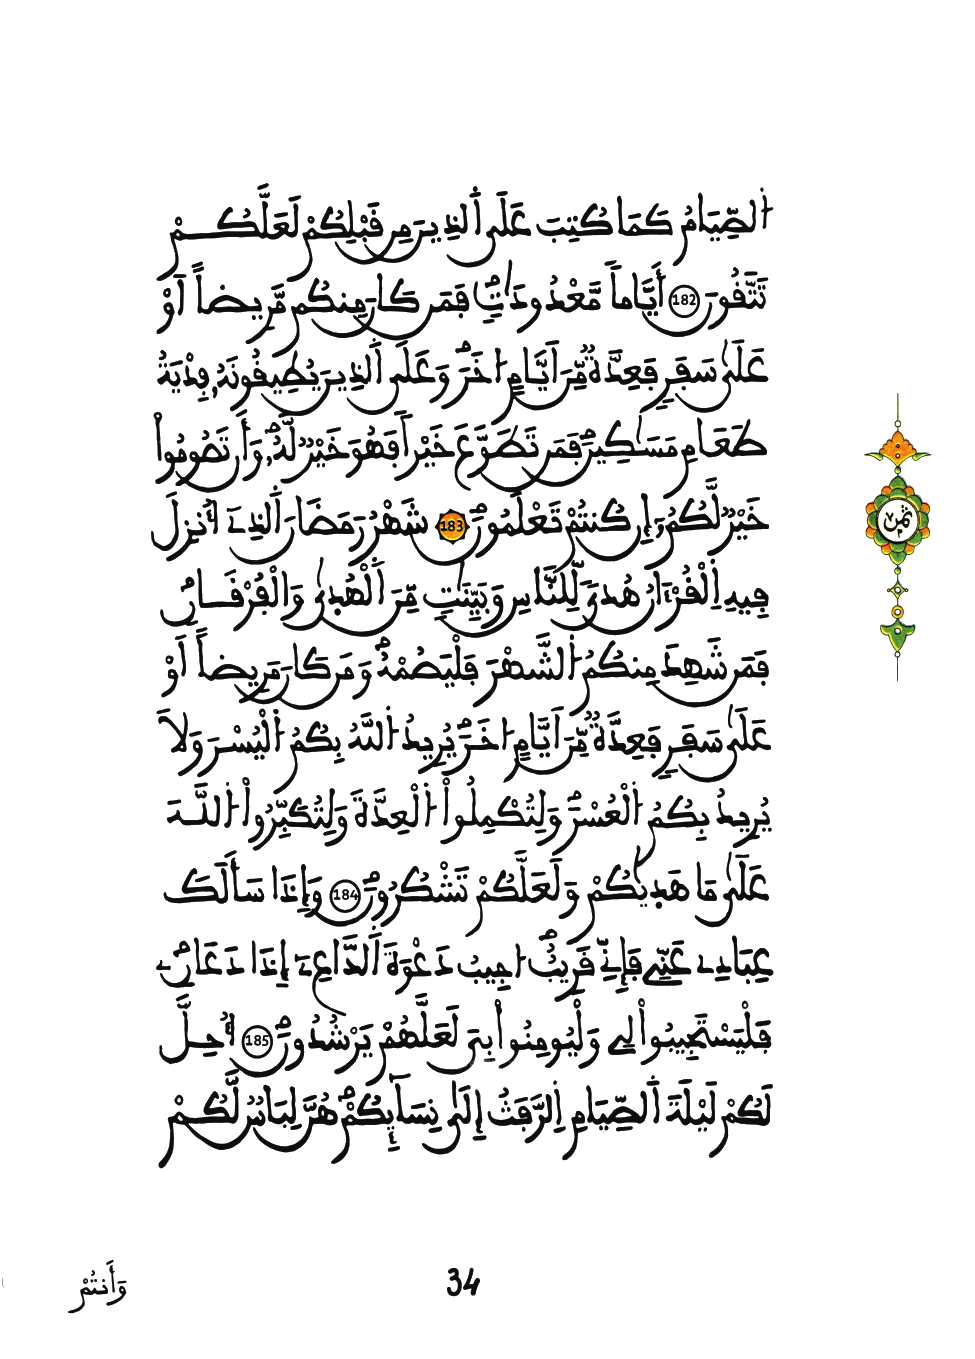 اَ۬لصِّيَامُ كَمَا كُتِبَ عَلَى اَ۬لذِينَ مِن قَبْلِكُمْ لَعَلَّكُمْ
تَتَّقُونَ 182 أَيَّاماٗ مَّعْدُودَٰتٖۖ فَمَن كَانَ مِنكُم مَّرِيضاً اَوْ
عَلَىٰ سَفَرٖ فَعِدَّةٞ مِّنَ اَيَّامٍ ا۟خَرَۖ وَعَلَى اَ۬لذِينَ يُطِيقُونَهُۥ فِدْيَةُ
طَعَامِ مَسَٰكِينَۖ فَمَن تَطَوَّعَ خَيْراٗ فَهُوَ خَيْرٞ لَّهُۥۖ وَأَن تَصُومُواْ
خَيْرٞ لَّكُمُۥٓ إِن كُنتُمْ تَعْلَمُونَۖ 183 شَهْرُ رَمَضَانَ اَ۬لذِےٓ أُنزِلَ
فِيهِ اِ۬لْقُرْءَانُ هُدىٗ لِّلنَّاسِ وَبَيِّنَٰتٖ مِّنَ اَ۬لْهُد۪ىٰ وَالْفُرْقَانِۖ
فَمَن شَهِدَ مِنكُمُ اُ۬لشَّهْرَ فَلْيَصُمْهُۖ وَمَن كَانَ مَرِيضاً اَوْ
عَلَىٰ سَفَرٖ فَعِدَّةٞ مِّنَ اَيَّامٍ ا۟خَرَۖ يُرِيدُ اُ۬للَّهُ بِكُمُ اُ۬لْيُسْرَ وَلَا
يُرِيدُ بِكُمُ اُ۬لْعُسْرَۖ وَلِتُكْمِلُواْ اُ۬لْعِدَّةَ وَلِتُكَبِّرُواْ اُ۬للَّهَ
عَلَىٰ مَا هَد۪يٰكُمْ وَلَعَلَّكُمْ تَشْكُرُونَۖ 184 وَإِذَا سَأَلَكَ
عِبَادِے عَنِّے فَإِنِّے قَرِيبٌۖ ا۟جِيبُ دَعْوَةَ اَ۬لدَّاعِۦٓ إِذَا دَعَانِۦۖ
فَلْيَسْتَجِيبُواْ لِے وَلْيُومِنُواْ بِيَ لَعَلَّهُمْ يَرْشُدُونَۖ 185 أُحِلَّ
لَكُمْ لَيْلَةَ اَ۬لصِّيَامِ اِ۬لرَّفَثُ إِلَىٰ نِسَآئِكُمْۖ هُنَّ لِبَاسٞ لَّكُمْ
ثمن
34
وَأَنتُمْ